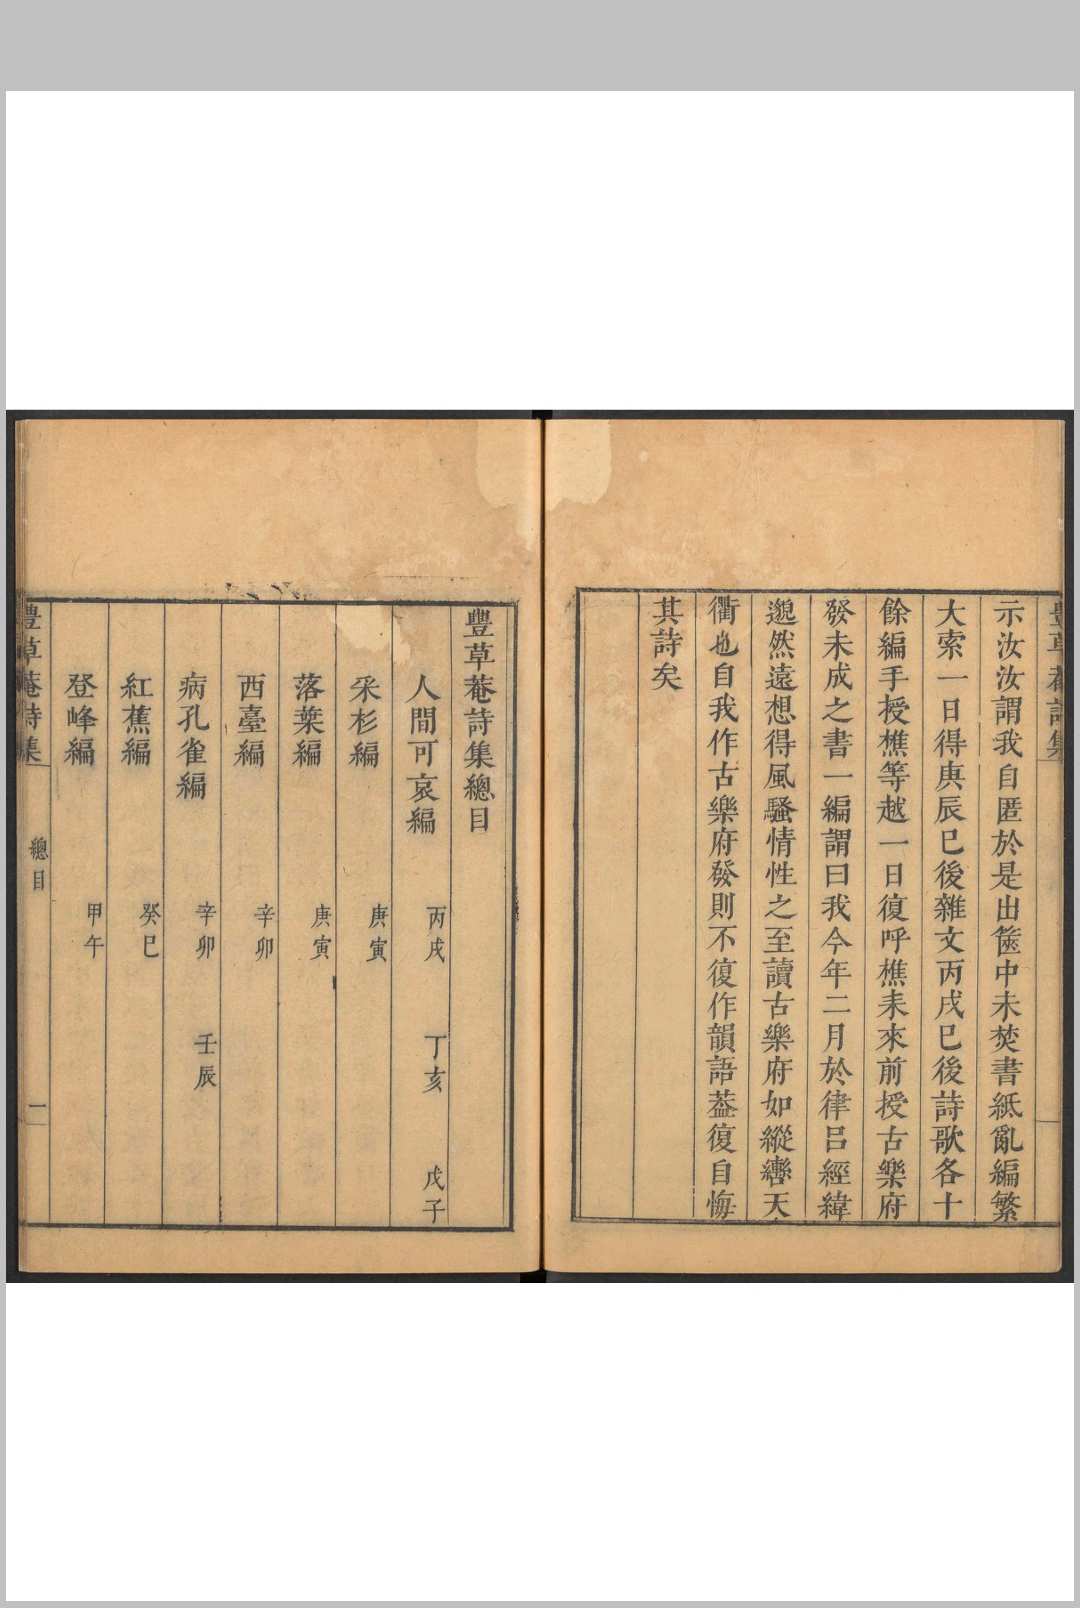 豊草菴詩集
示汝汝謂我自匿於是出篋中未焚書紙亂編繁
大索一日得庚辰巳後雜文丙戌巳後詩歌各十
餘編手授樵等越一日復呼樵耒來前授古樂府
發未成之書一編謂曰我今年二月於律呂經緯
邈然遠想得風騷情性之至讀古樂府如縱轡天
衢也自我作古樂府發則不復作韻語葢復自悔
其詩矣
豐草菴詩集總目
人間可哀編 丙戌 丁亥 戊子
采杉編 庚寅
落葉編 庚寅
西臺編 辛卯
病孔雀編 辛卯 壬辰
紅蕉編 癸巳
登峰編 甲午
豊草菴詩集 總目 一